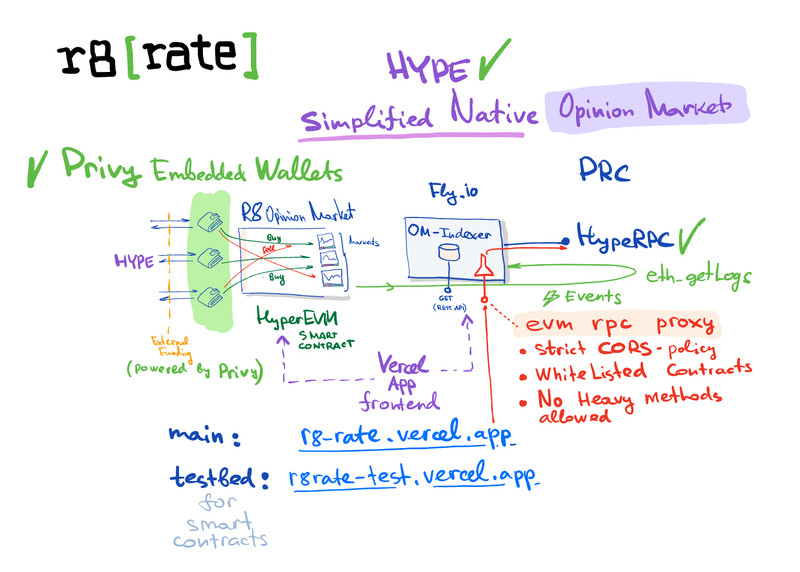 r8[rate]
HYPE
Simplified Native Opinion Market
Privy Embedded Wallets
PRC
Fly.io
R8 Opinion Market
OM-Indexer
HypeRPC
Buy
Sell
Markets
HYPE
Buy
eth_getLogs
GET
(REST API)
Events
HyperEVM
SMART
CONTRACT
External
Funding
(powered by Privy)
evm rpc proxy
• Strict CORS-policy
• WhiteListed Contracts
• No Heavy methods
allowed
Vercel
App
frontend
main: r8-rate.vercel.app
testbed: r8rate-test.vercel.app
for
smart
contracts